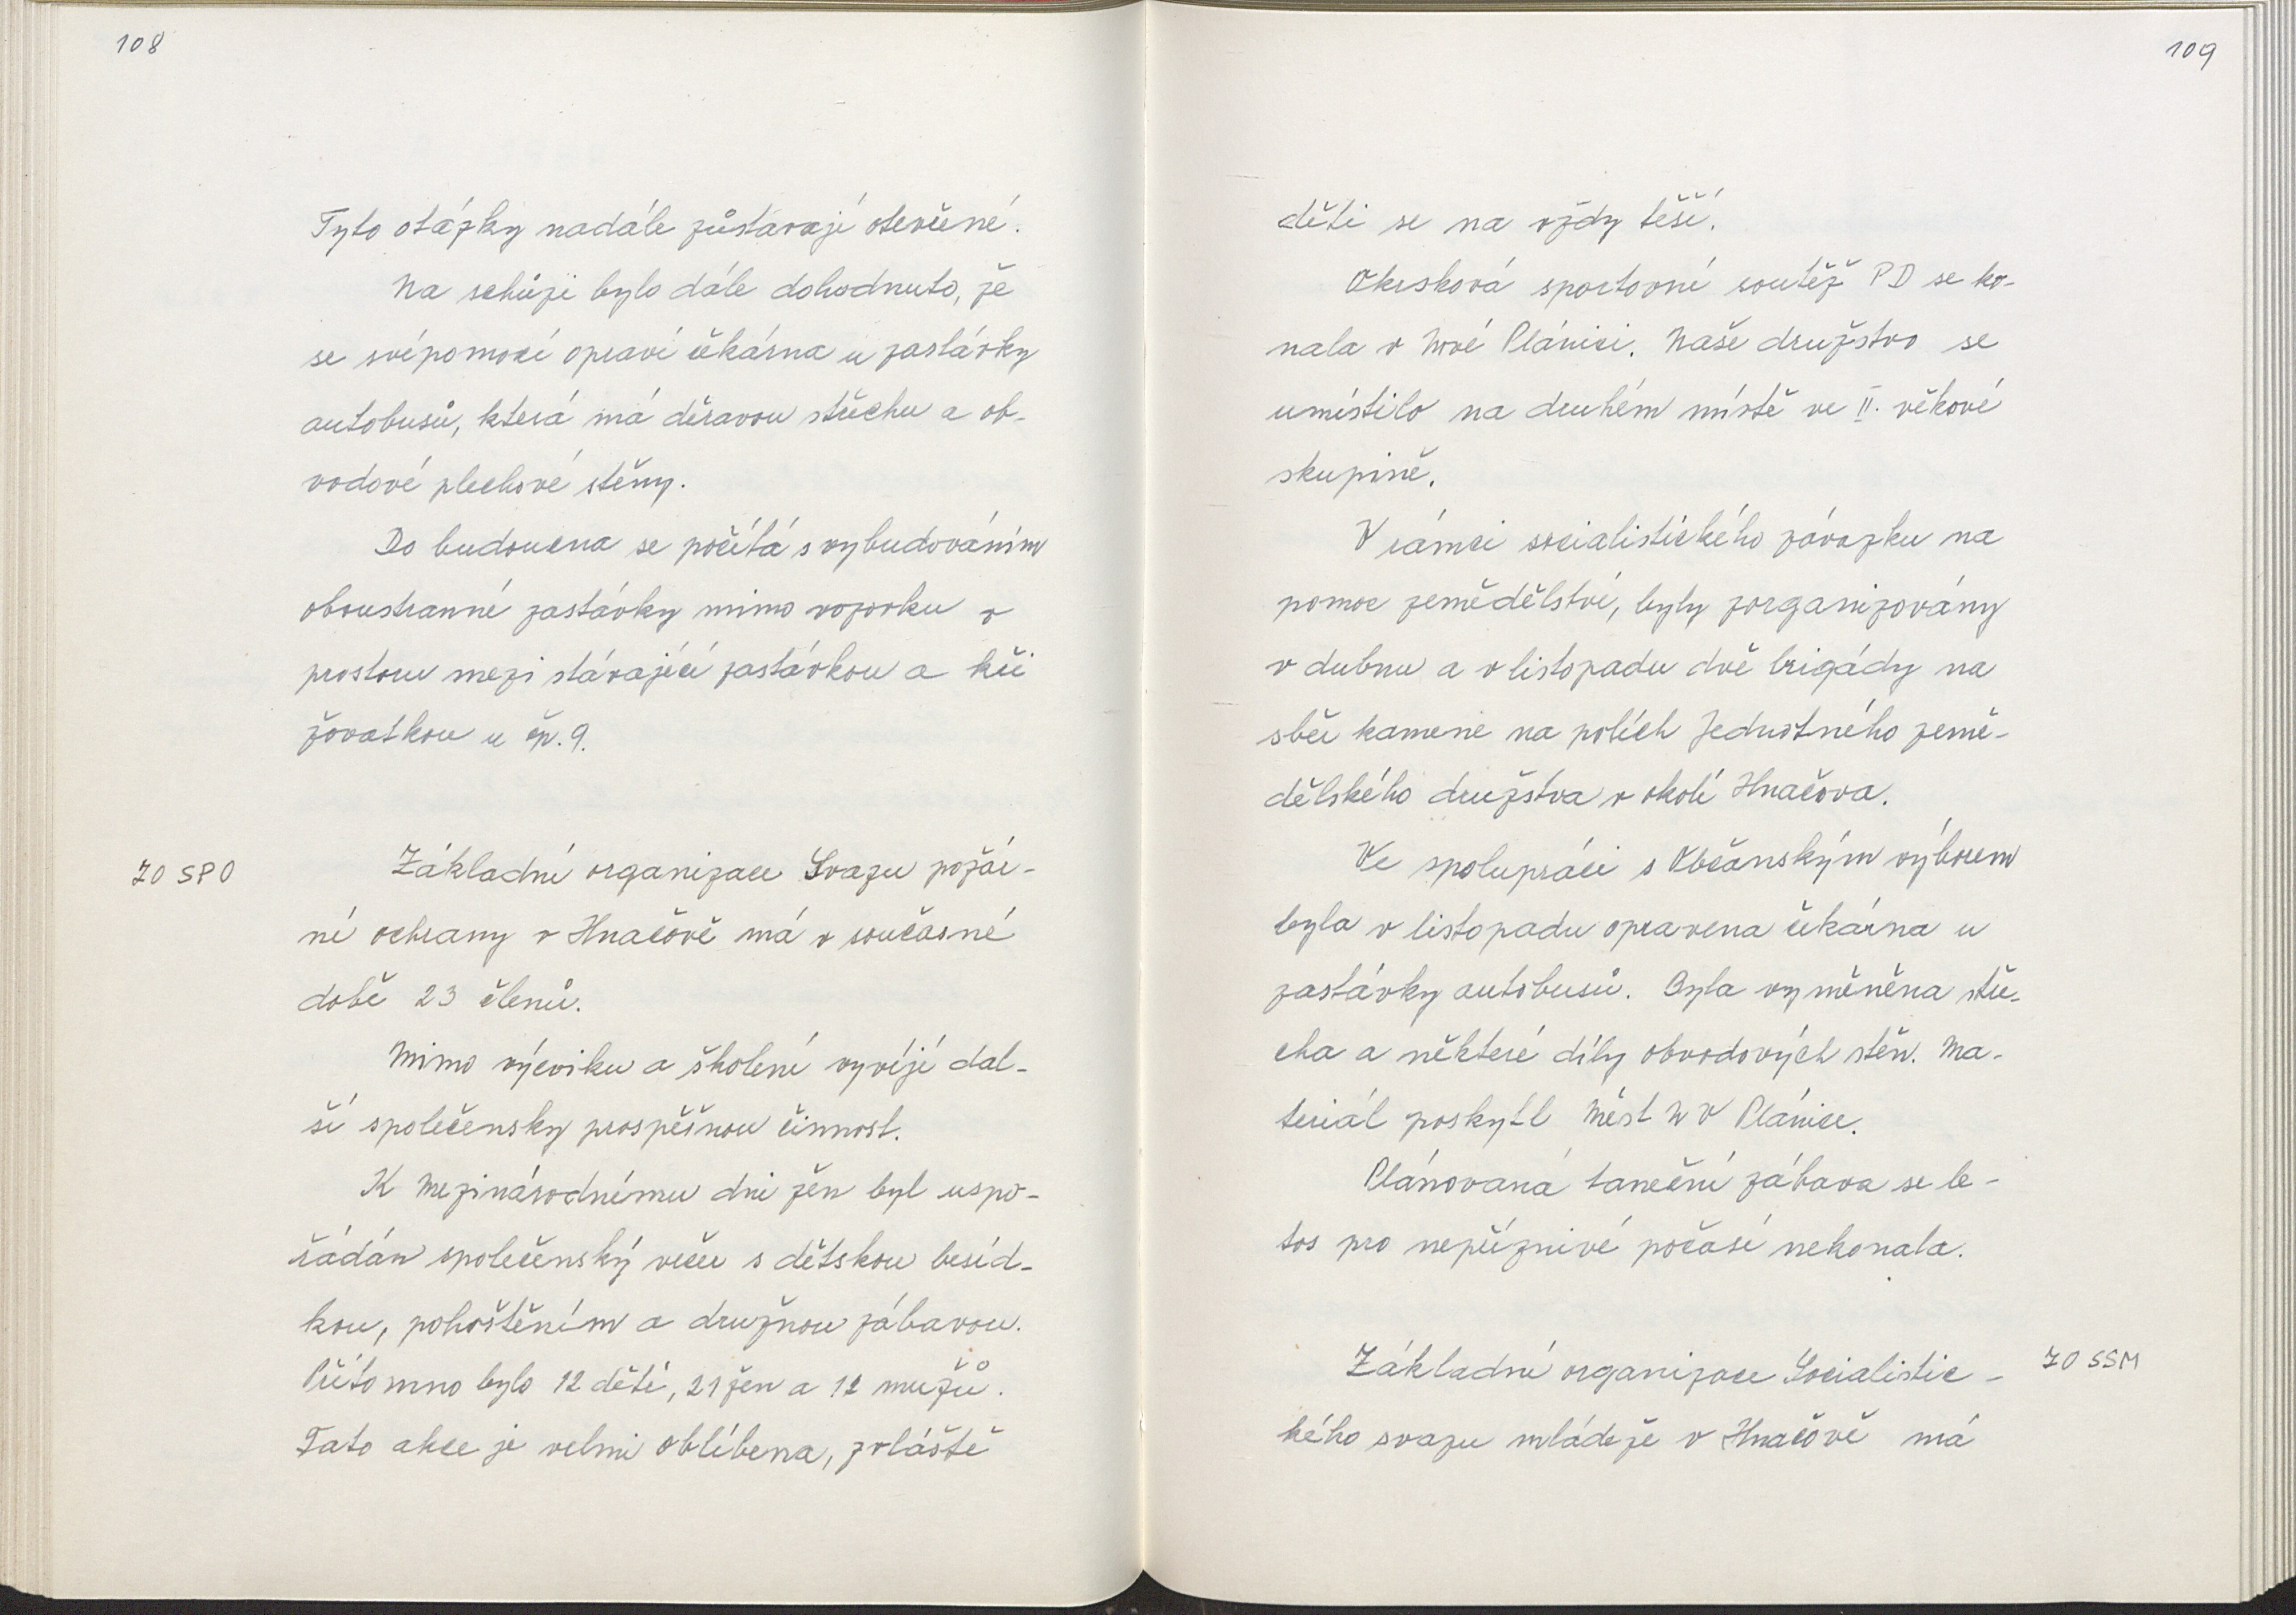 108
Tyto otázky nadále zůstávají otevřené.
Na schůzi bylo dále dohodnuto, že
se svépomocí opraví čekárna u zastávky
autobusů, která má děravou střechu a ob-
vodové plechové stěny.
Do budoucna se počítá s vybudováním
oboustranné zastávky mimo vozovku v
prostoru mezi stávající zastávkou a kři
žovatkou u čp. 9.
ZO SPO
Základní organizace Svazu požár-
ní ochrany v Hnačově má v současné
době 23 členů.
Mimo výcviku a školení vyvíjí dal-
ší společensky prospěšnou činnost.
K Mezinárodnímu dni žen byl uspo-
řádán společenský večer s dětskou besíd-
kou, pohoštěním a družnou zábavou.
Přítomno bylo 12 dětí, 21 žen a 12 mužů.
Tato akce je velmi oblíbena, zvláště
109
děti se na vždy těší.
Okrsková sportovní soutěž PD se ko-
nala v Nové Plánici. Naše družstvo se
umístilo na druhém místě ve II. věkové
skupině.
V rámci socialistického závazku na
pomoc zemědělství, byly zorganizovány
v dubnu a v listopadu dvě brigády na
sběr kamene na polích Jednotného země-
dělského družstva v okolí Hnačova.
Ve spolupráci s Občanským výborem
byla v listopadu opravena čekárna u
zastávky autobusů. Byla vyměněna stře-
cha a některé díly obvodových stěn. Ma-
teriál poskytl Měst N V Plánice.
Plánovaná taneční zábava se le-
tos pro nepříznivé počasí nekonala.
Základní organizace Socialistic-
ZO SSM
kého svazu mládeže v Hnačově má